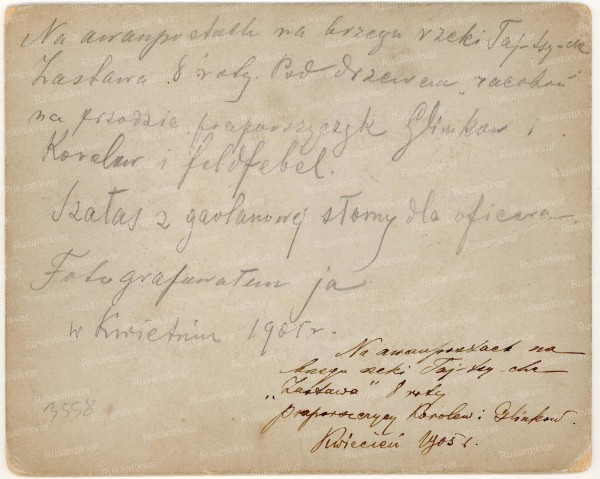 Na awanpostach na brzegu rzeki Taj-tsy-che
Zastawa 8 roty. Pod drzewem
na przodzie praporszczyk Glinkow i
Korolew i feldfebel.
Szałas z gaolanowej słomy dla oficerów.
Fotografowałem ja
w Kwietniu 1905 r.
Na awanpostach na
brzegu rzeki Taj-tsy-che
„Zastawa” 8 roty
praporszczycy Korolew i Glinkow.
Kwiecień 1905 r.
3558
Rusantikvar